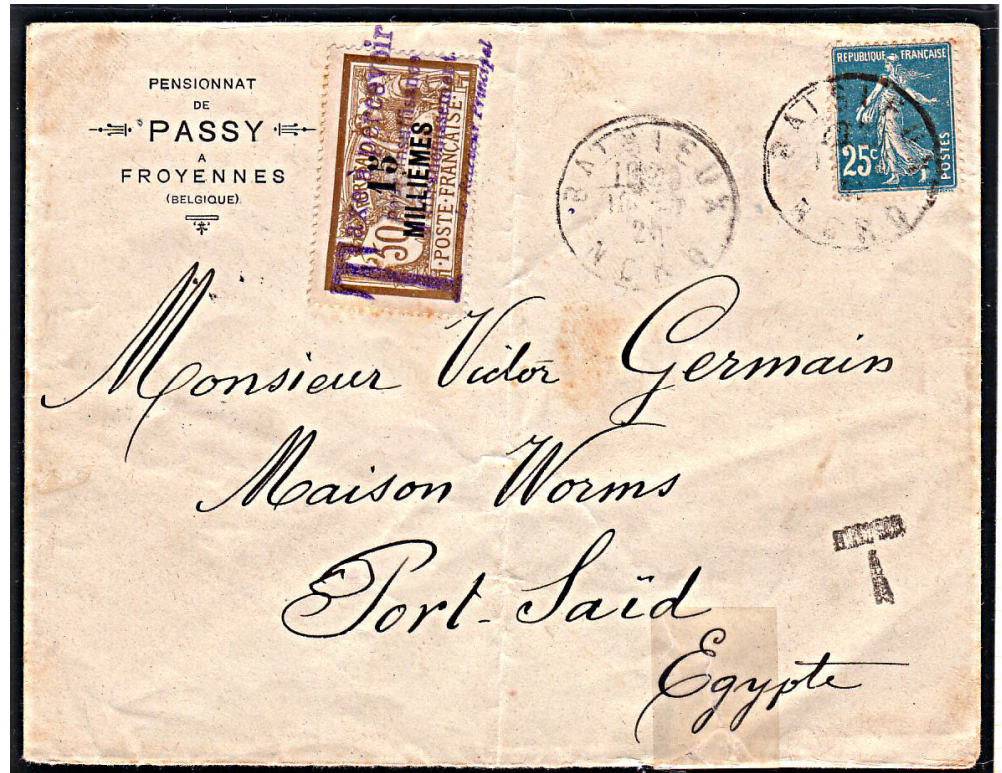 PENSIONNAT
DE
PASSY
A
FROYENNES
(BELGIQUE)
Taxe à percevoir
15
MILLIÈMES
50
POSTE FRANÇAISE
BAISIEUX
NORD
REPUBLIQUE FRANÇAISE
25c
POSTES
BAISIEUX
NORD
Monsieur Victor Germain
Maison Worms
Port-Saïd
Egypte
T